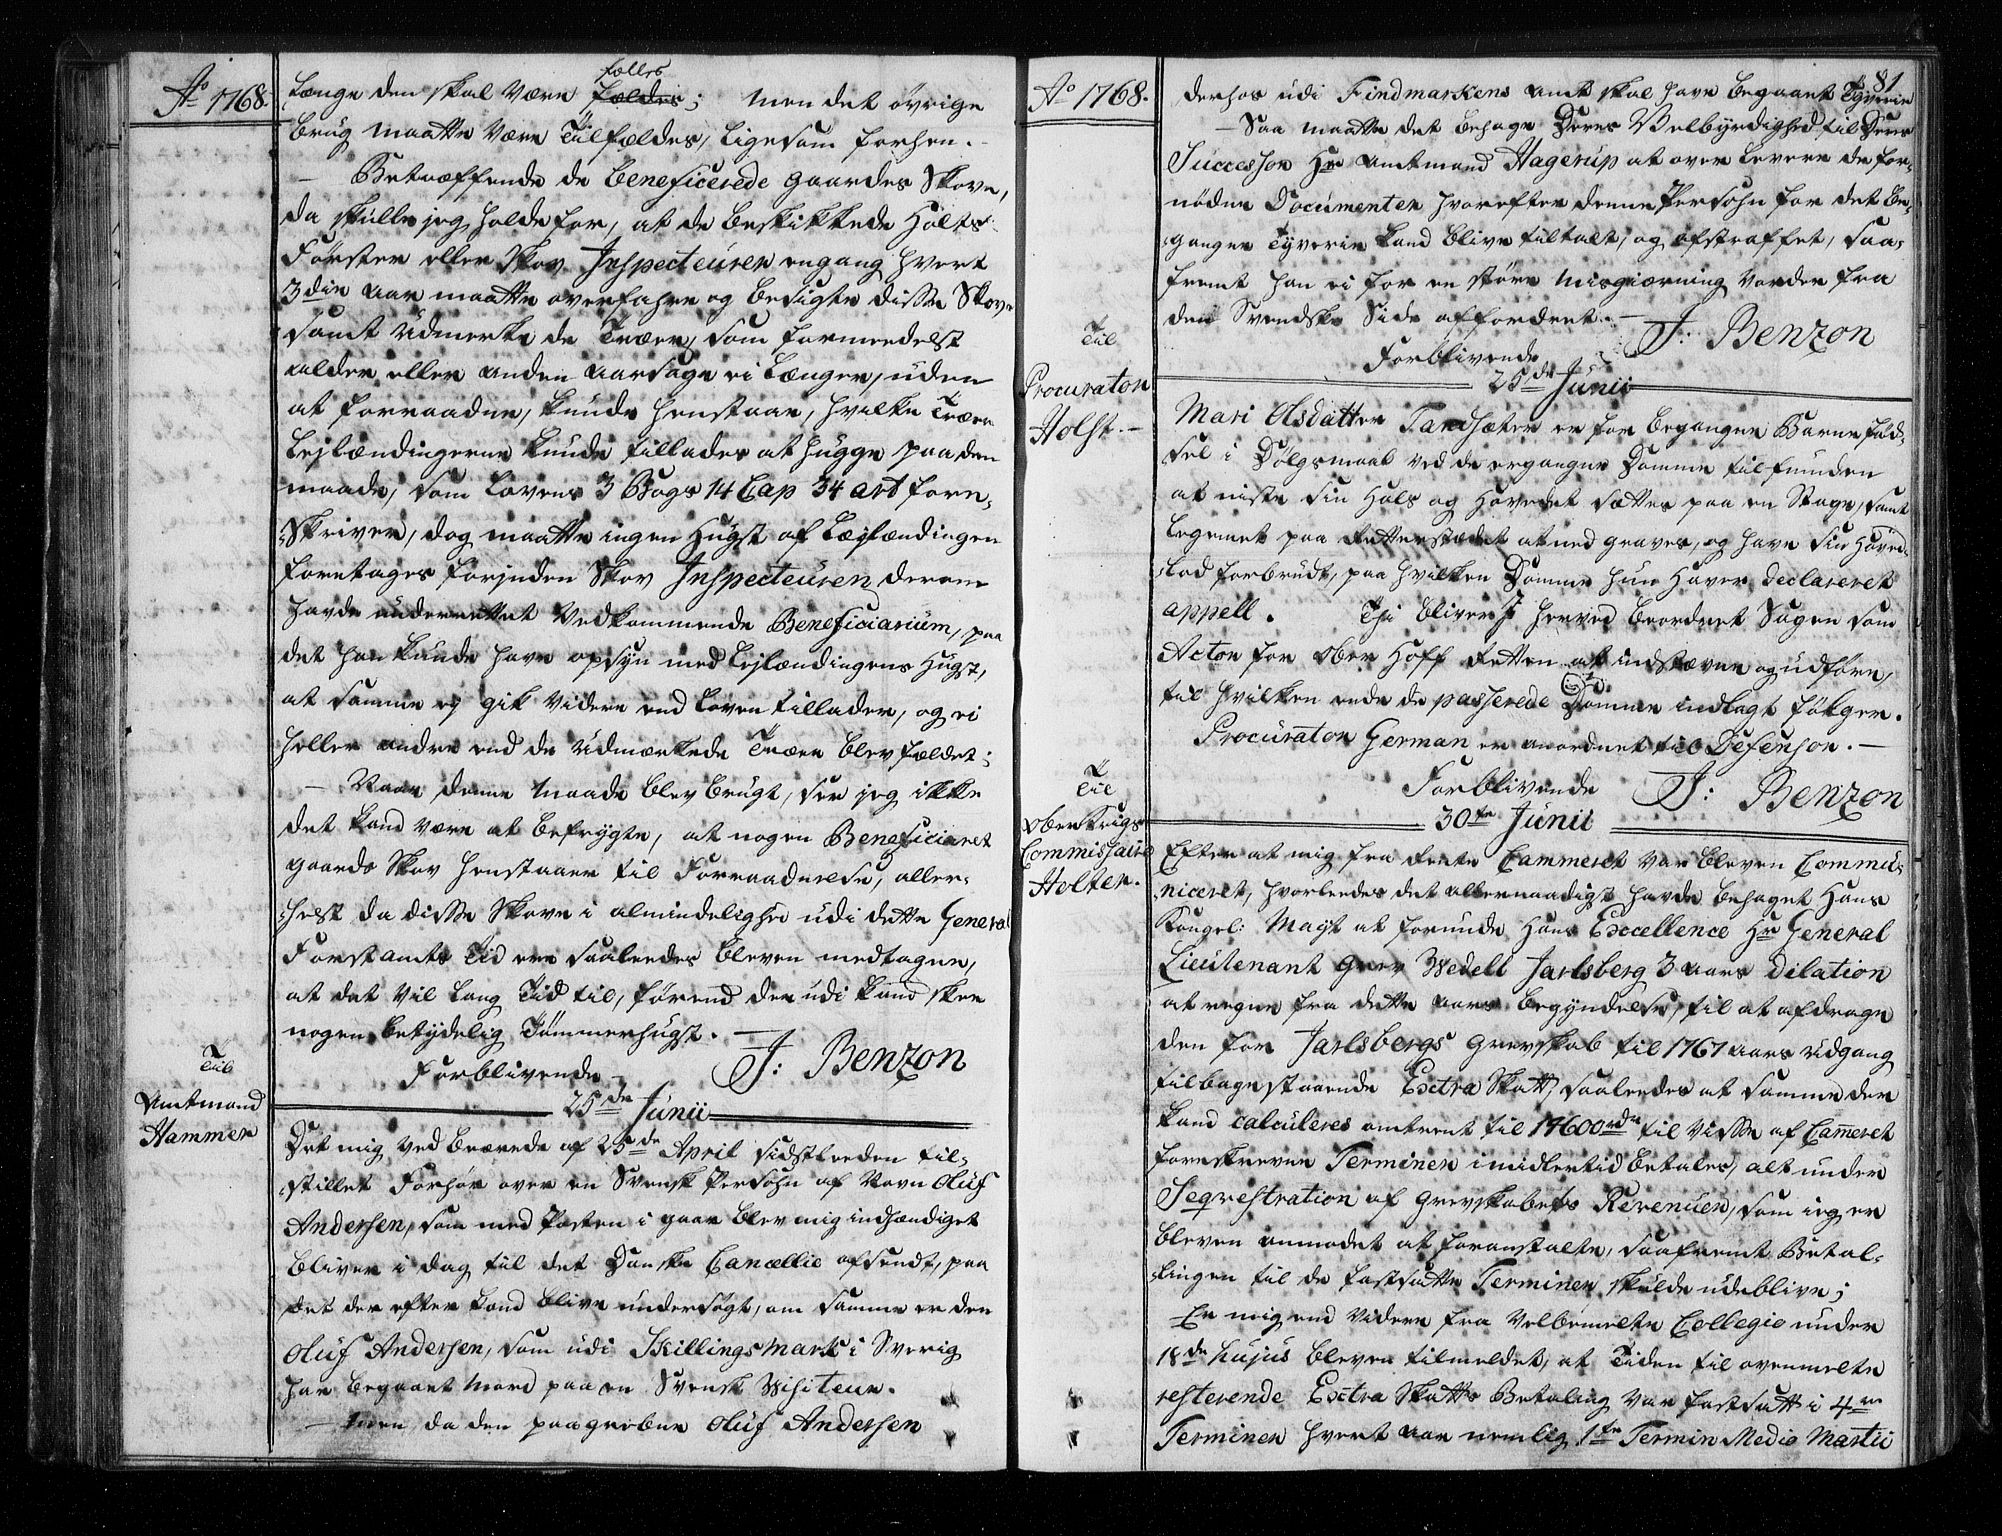 Ao 1768.
længe den skal være fælles fældes; men det øvrige
brug maatte være Tilfældes, ligesom forhen.
- Betræffende de beneficerede gaardes Skove,
da skulle jeg holde for, at de beskikkede Holts-
Förster eller Skov Inspecteuren engang hvert
3die aar maatte overfahre og besigte disse Skove
samt udmerke de Træer, som formedelst
alder eller anden aarsage ei længer, uden
at forraadne, kunde henstaae, hvilke Træer
Lejlændingerne kunde tillades at hugge paa den
maade, som Lovens 3 Bogs 14 Cap 34 art fore-
skriver, dog maatte ingen Hugst af Lejlændingen
foretages forinden Skov Inspecteuren derom
havde underrettet Vedkommende Beneficiarium, paa
det han kunde have opsyn med Lejlændingens Hugst,
at samme ej gik videre end Loven tillader, og ei
heller andre end de udmærkede Træer blev fældet;
- Naar denne maade blev brugt, seer jeg ikke
det kand være at befrygte, at nogen Beneficiaret
gaards Skov henstaaer til Forraadnelse, aller-
helst da disse Skove i almindelighed udi dette General
Forstamts Tid ere saaleedes bleven medtagne,
at det vil lang Tid til, førend der udi kand skee
nogen betydelig Tømmerhugst. -
Forblivende - J: Benzon
25de Junii
Til
Amtmand
Hammer
Det mig ved brevede af 25de April sidstleeden til-
stillet Forhør over en Svensk Persohn af Navn Oluf
Andersen, som med Posten i gaar blev mig indhændiget
bliver i dag til det Danske Cancellie afsendt, paa
det der efter kand blive undersøgt, om samme er den
Oluf Andersen, som udi Skillingsmark i Sverig
har begaaet Mord paa en Svensk Visiteur.
- Men da den paagrebne Oluf Andersen
Ao 1768.
81
derhos udi Findmarkens amt skal have begaaet Tyverie
- Saa maatte det behage Deres Velbyrdighed, til Deres
Successor Hr Amtmand Hagerup at over levere de for-
nødne Documenter hvorefter denne Persohn for det be-
gangne Tyverie kand blive tiltalt, og afstraffet, saa-
fremt han ei for en større Misgierning vorder fra
den Svendske Side affordret. -
Forblivende J: Benzon
25de Junii
Til
Procurator
Holst. -
Mari Olsdatter Tandsæter er for begangen Barne fød-
sel i Dølgsmaal ved de ergangne Domme tilfunden
at miste sin Hals og Hovedet sættes paa en Stage, samt
Legemet paa Retterstædet at ned graves, og have sin Hoved-
lod forbrudt, paa hvilken Domme hun haver declareret
appell. Thi bliver I herved beordret Sagen som
Actor for Ober Hoff Retten at indstævne og udføre,
til hvilken ende de passerede 2de Domme indlagt følger.
Procurator German er anordnet til Defensor. -
Forblivende J: Benzon
30te Junii
Til
Ober Krigs
Commissaire
Holter. -
Efter at mig fra Rente Cammeret var bleven Commu-
niceret, hvorleedes det allernaadigst havde behaget Hans
Kongel: Mayt at forunde Hans Excellence Hr General
Lieutenant Grev Wedell Jarlsberg 3 aars dilation
at regne fra dette aars begyndelse, til at afdrage
den for Jarlsbergs Grevskab til 1767 aars udgang
tilbagestaaende Extra Skatt, saaleedes at samme der
kand calculeres omtrent til 14600 rdr til visse af Cammeret
foreskrevne Terminer imidlertid betales, alt under
Seqvestration af Grevskabets Revenüer, som ieg er
bleven anmodet at foranstalte, saafremt Betal-
lingen til de fastsatte Terminer skulde udeblive;
- Er mig end videre fra Velbemelte Collegio under
18de hujus bleven tilmeldet, at Tiden til ovenmelte
resterende Extra Skatts Betaling var fastsatt i 4re
Terminer hvert aar nemlig, 1te Termin Medio Martii